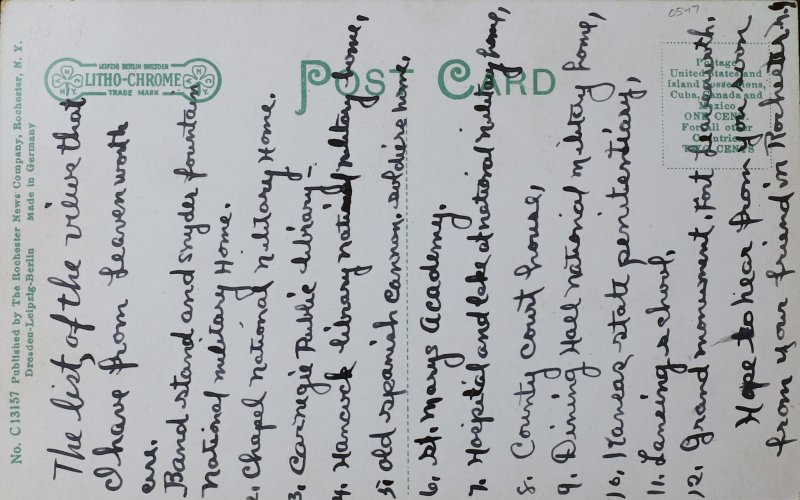 No. C 13157 Published by The Rochester News Company, Rochester, N. Y.
Dresden-Leipzig-Berlin Made in Germany
LEIPZIG BERLIN DRESDEN
LITHO-CHROME
TRADE MARK
POST CARD
0547
Postage
United States and
Island Possessions,
Cuba, Canada and
Mexico
ONE CENT.
For all other
Countries
TWO CENTS
The list of the views that
I have from Leavenworth
are.
Band stand and Snyder fountain
National military Home.
2. Chapel National Military Home.
3. Carnegie Public library-
4. Hancock library national military home,
5. old spanish cannon, soldiers home,
6. St. Marys Academy.
7. Hospital and lake at national military home,
8. County Court house,
9. Dining Hall national military home,
10. Kansas state penitentiary,
11. Lansing school,
12. Grand monument, Fort Leavenworth.
Hope to hear from you soon
from your friend in Rochester N.Y.